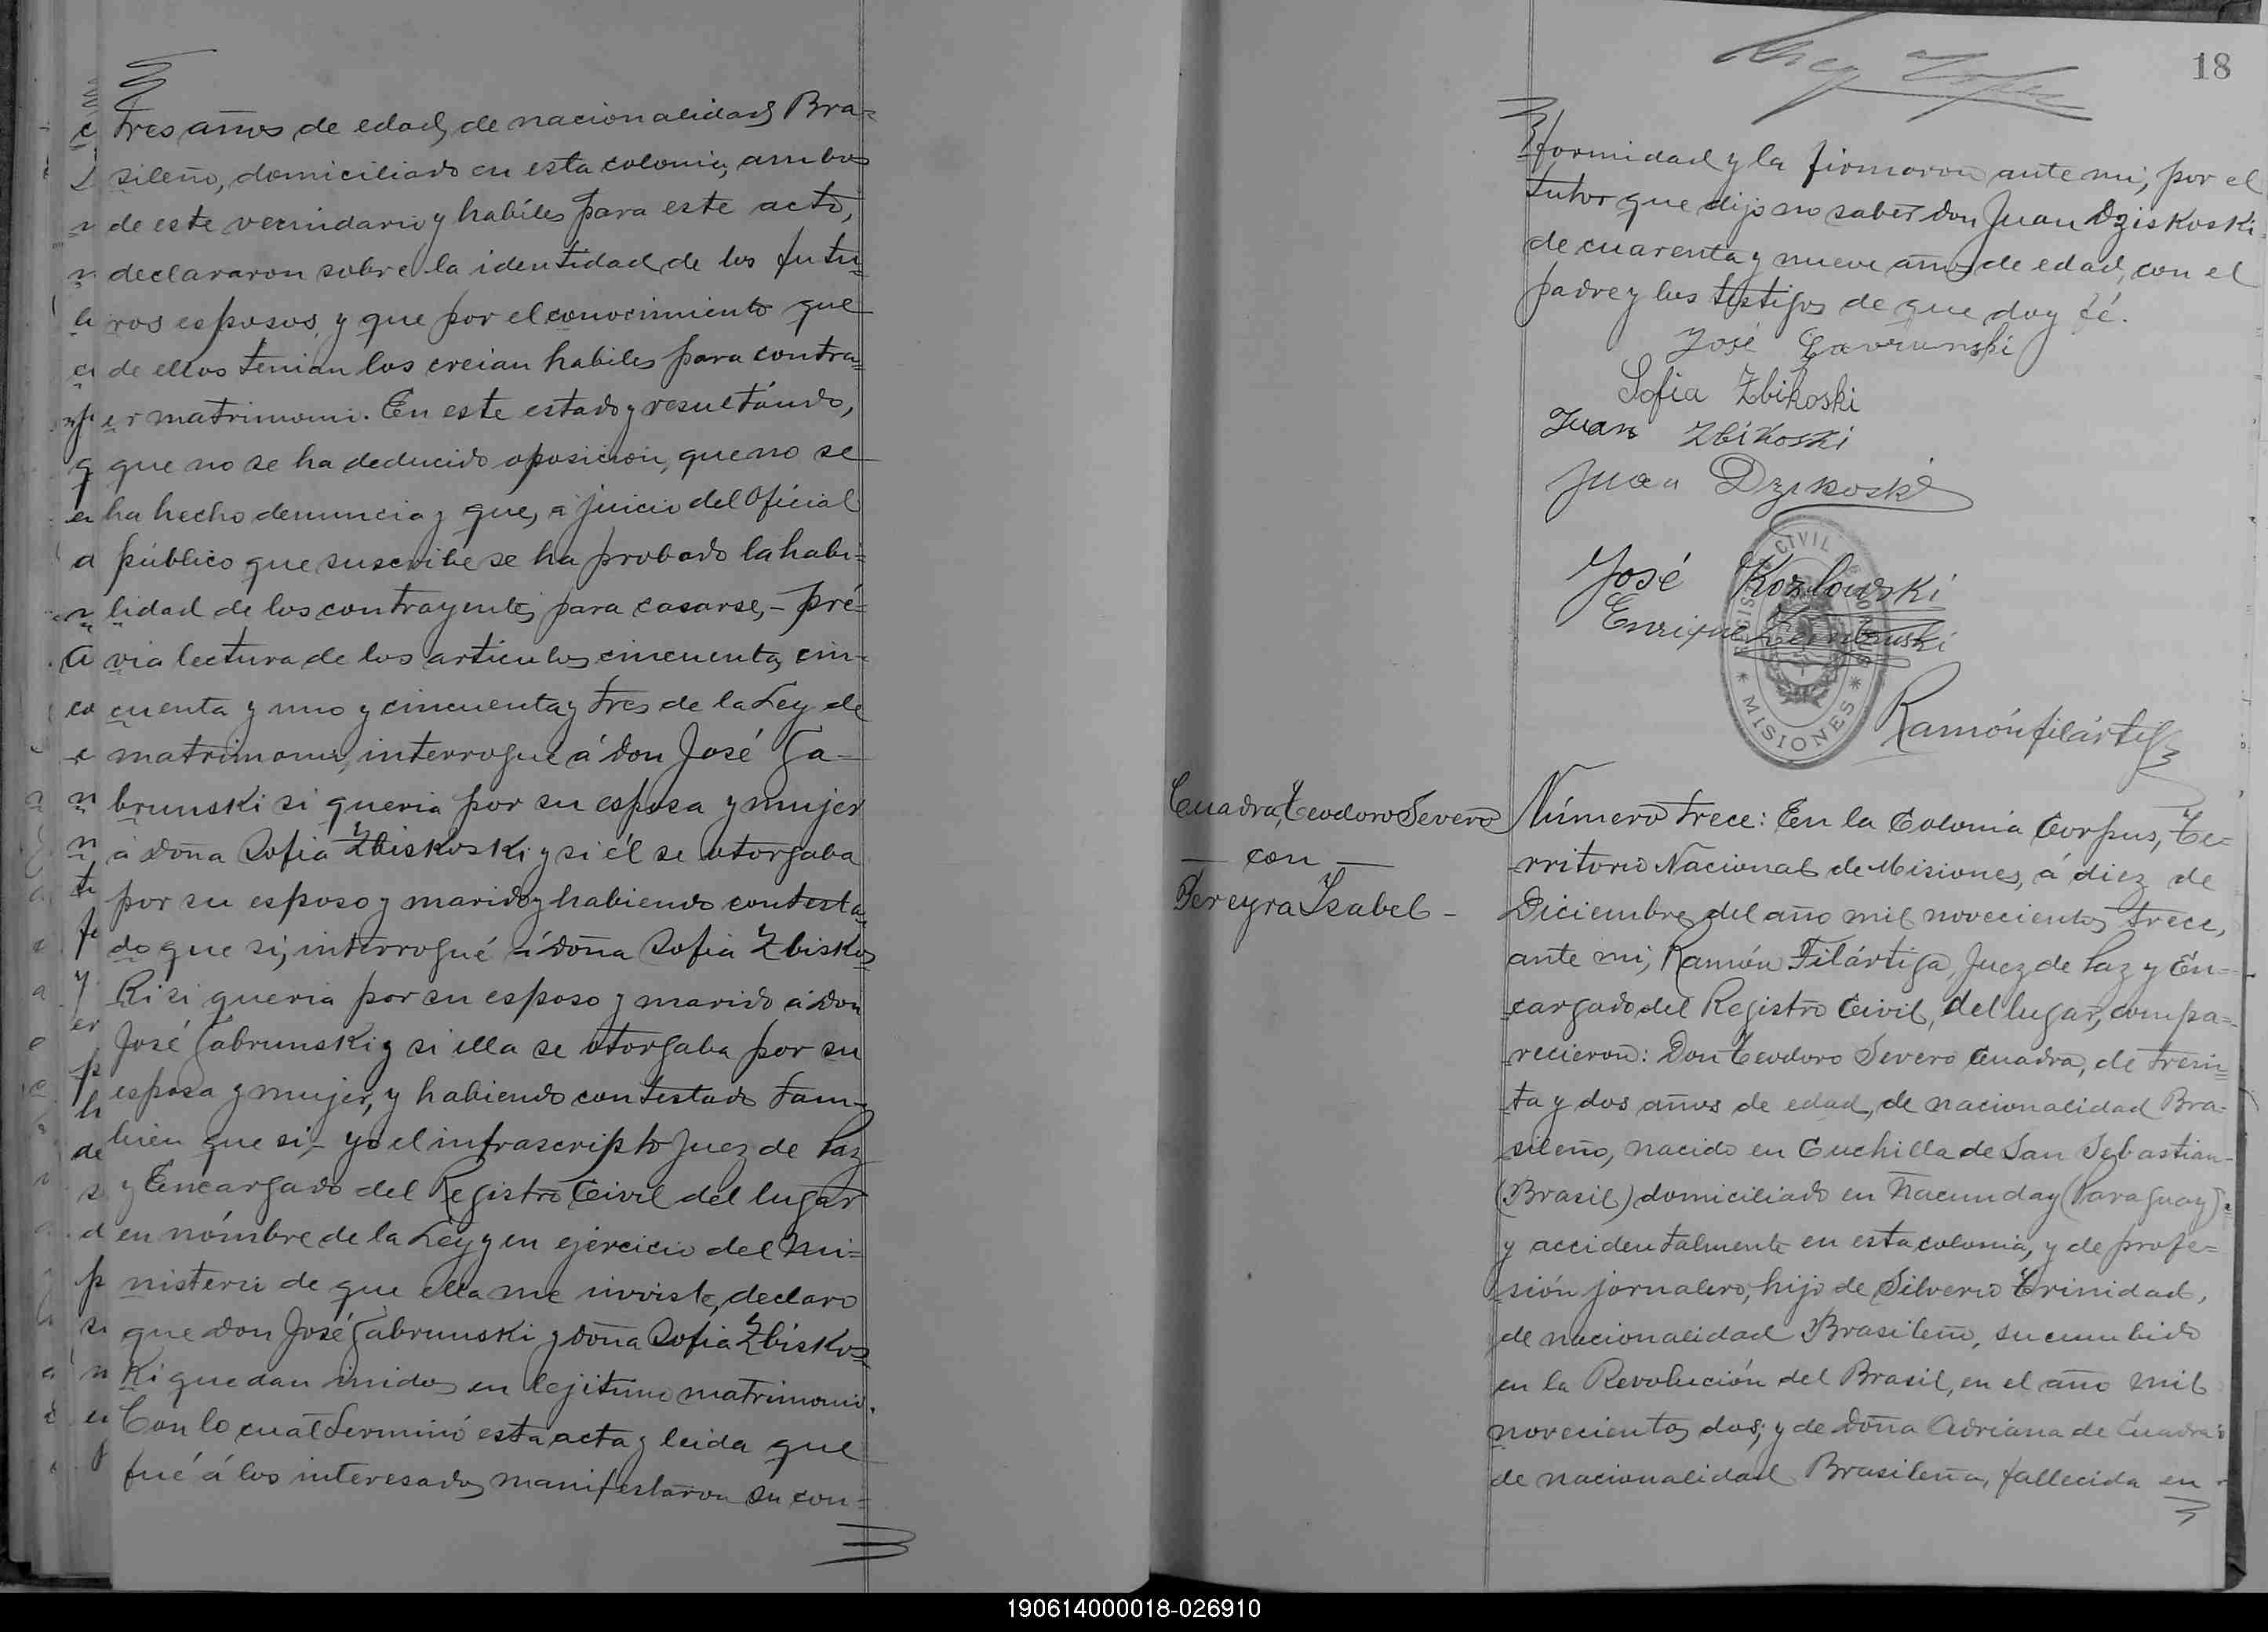 tres años de edad, de nacionalidad Bra=
sileño, domiciliado en esta colonia, ambos
de este vecindario y habiles para este acto,
declararon sobre la identidad de los futu=
ros esposos, y que por el conocimiento que
de ellos tenian los creian habiles para contra=
er matrimonio. En este estado y resultando,
que no se ha deducido oposicion, que no se
ha hecho denuncia y que, a juicio del Oficial
público que suscribe se ha probado la habi=
lidad de los contrayentes para casarse, - pré=
via lectura de los articulos cincuenta, cin-
cuenta y uno y cincuenta y tres de la Ley de
matrimonio, interrogue á Don José Ga-
brunski si queria por su esposa y mujer
á Doña Sofia Zbiskoski y si él se otorgaba
por su esposo y marido y habiendo contesta=
do que si, interrogué á Doña Sofia Zbiskos=
ki si queria por su esposo y marido á Don
José Gabrunski y si ella se otorgaba por su
esposa y mujer, y habiendo contestado tam-
bien que si - yo el infrascripto Juez de Paz
y Encargado del Registro Civil del lugar
en nómbre de la Ley y en ejercicio del Mi=
nisterio de que ella me inviste, declaro
que Don José Gabrunski y Doña Sofia Zbiskos=
ki quedan unidos en lejitimo matrimonio.
Con lo cual terminó esta acta y leida que
fué á los interesados manifestaron su con=
18
formidad y la firmaron ante mi, por el
tutor que dijo no saber Don Juan Dziskoski
de cuarenta y nueve años de edad, con el
padre y los testigos de que doy fé.
José Gavrunski
Sofia Zbikoski
Juan Zbikoski
Juan Dzikoski
José Kozlowski
Enrique
REGISTRO CIVIL
* MISIONES *
Ramón filártiga
Cuadra, Teodoro Severo
— con —
Pereyra Ysabel -
Número trece: En la Colonia Corpus, Te=
rritorio Nacional de Misiones, á diez de
Diciembre del año mil novecientos trece,
ante mi, Ramón Filártiga, Juez de Paz y En=
cargado del Registro Civil, del lugar, compa=
recieron: Don Teodoro Severo Cuadra, de trein=
ta y dos años de edad, de nacionalidad Bra=
sileño, nacido en Cuchilla de San Sebastian
(Brasil) domiciliado en Ñacunday (Paraguay)
y accidentalmente en esta colonia, y de profe=
sión jornalero, hijo de Silverio Trinidad,
de nacionalidad Brasileño, sucumbido
en la Revolución del Brasil, en el año mil
novecientos dos; y de doña Adriana de Cuadra
de nacionalidad Brasileña, fallecida en
190614000018-026910